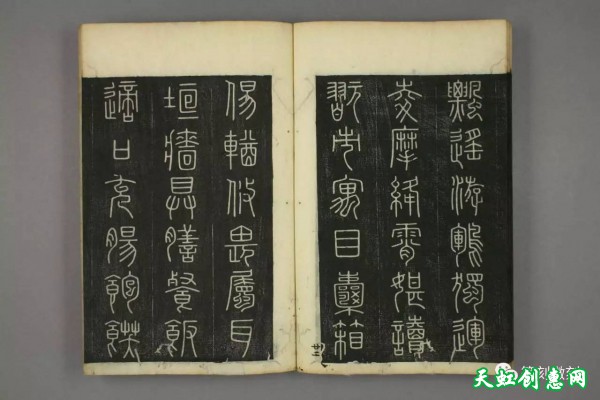 飄遙游鵾獨運
夌摩絳霄媅讀
翫市寓目囊箱
易輶攸畏屬耳
垣牆具膳餐飯
適口充腸飽飫
天虹创惠网